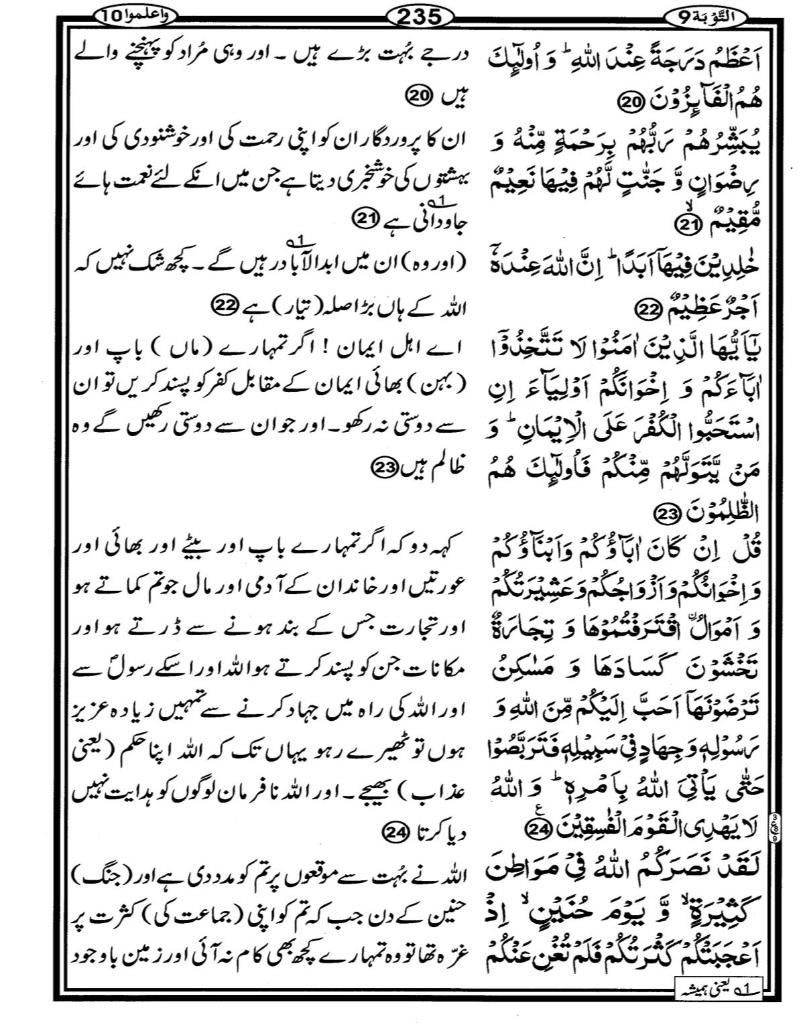 التَّوْبَة 9
235
واعلموا 10
اَعْظَمُ دَرَجَةً عِنْدَ اللّٰهِ ؕ وَ اُولٰٓئِكَ
هُمُ الْفَآئِزُوْنَ 20
يُبَشِّرُهُمْ رَبُّهُمْ بِرَحْمَةٍ مِّنْهُ وَ
رِضْوَانٍ وَّ جَنّٰتٍ لَّهُمْ فِيْهَا نَعِيْمٌ
مُّقِيْمٌ ۙ 21
خٰلِدِيْنَ فِيْهَاۤ اَبَدًا ؕ اِنَّ اللّٰهَ عِنْدَهٗۤ
اَجْرٌ عَظِيْمٌ 22
يٰۤاَيُّهَا الَّذِيْنَ اٰمَنُوْا لَا تَتَّخِذُوْۤا
اٰبَآءَكُمْ وَ اِخْوَانَكُمْ اَوْلِيَآءَ اِنِ
اسْتَحَبُّوا الْكُفْرَ عَلَى الْاِيْمَانِ ؕ وَ
مَنْ يَّتَوَلَّهُمْ مِّنْكُمْ فَاُولٰٓئِكَ هُمُ
الظّٰلِمُوْنَ 23
قُلْ اِنْ كَانَ اٰبَآؤُكُمْ وَاَبْنَآؤُكُمْ
وَاِخْوَانُكُمْ وَاَزْوَاجُكُمْ وَعَشِيْرَتُكُمْ
وَ اَمْوَالُ ۨ اقْتَرَفْتُمُوْهَا وَ تِجَارَةٌ
تَخْشَوْنَ كَسَادَهَا وَ مَسٰكِنُ
تَرْضَوْنَهَاۤ اَحَبَّ اِلَيْكُمْ مِّنَ اللّٰهِ وَ
رَسُوْلِهٖ وَجِهَادٍ فِيْ سَبِيْلِهٖ فَتَرَبَّصُوْا
حَتّٰى يَاْتِيَ اللّٰهُ بِاَمْرِهٖ ؕ وَ اللّٰهُ
لَا يَهْدِى الْقَوْمَ الْفٰسِقِيْنَ 24 ع
لَقَدْ نَصَرَكُمُ اللّٰهُ فِيْ مَوَاطِنَ
كَثِيْرَةٍ ۙ وَّ يَوْمَ حُنَيْنٍ ۙ اِذْ
اَعْجَبَتْكُمْ كَثْرَتُكُمْ فَلَمْ تُغْنِ عَنْكُمْ
درجے بُہت بڑے ہیں ۔ اور وہی مُراد کو پہنچنے والے
ہیں 20
ان کا پروردگار ان کو اپنی رحمت کی اور خوشنودی کی اور
بہشتوں کی خوشخبری دیتا ہے جن میں انکے لئے نعمت ہائے
جاودانی ہے 1ے 21
(اور وہ) ان میں ابدالآباد 1ے رہیں گے ۔ کچھ شک نہیں کہ
اللہ کے ہاں بڑا صلہ (تیار) ہے 22
اے اہل ایمان ! اگر تمہارے (ماں ) باپ اور
(بہن) بھائی ایمان کے مقابل کفر کو پسند کریں تو ان
سے دوستی نہ رکھو ۔ اور جو ان سے دوستی رکھیں گے وہ
ظالم ہیں 23
کہہ دو کہ اگر تمہارے باپ اور بیٹے اور بھائی اور
عورتیں اور خاندان کے آدمی اور مال جو تم کماتے ہو
اور تجارت جس کے بند ہونے سے ڈرتے ہو اور
مکانات جن کو پسند کرتے ہو اللہ اور اسکے رسولؐ سے
اور اللہ کی راہ میں جہاد کرنے سے تمہیں زیادہ عزیز
ہوں تو ٹھیرے رہو یہاں تک کہ اللہ اپنا حکم (یعنی
عذاب ) بھیجے ۔ اور اللہ نافرمان لوگوں کو ہدایت نہیں
دیا کرتا 24
اللہ نے بُہت سے موقعوں پر تم کو مدد دی ہے اور (جنگ)
حنین کے دن جب کہ تم کو اپنی (جماعت کی) کثرت پر
غرّہ تھا تو وہ تمہارے کچھ بھی کام نہ آئی اور زمین باوجود
1ے یعنی ہمیشہ